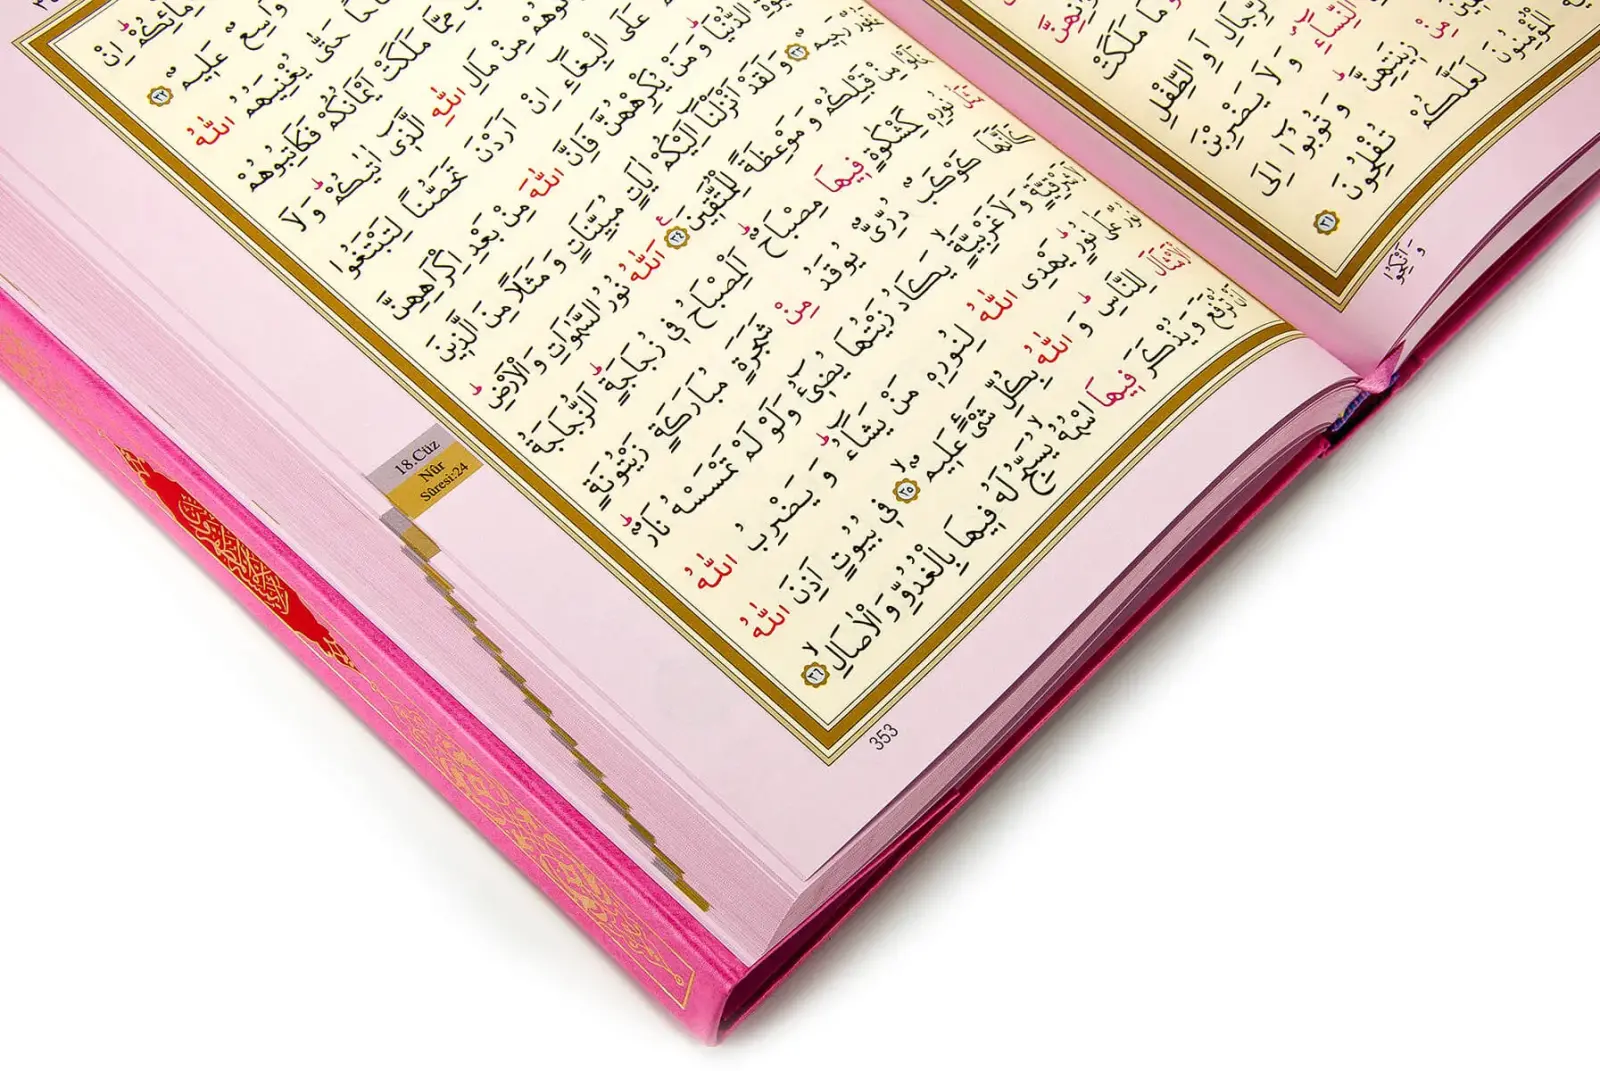 مَا مَلَكَتْ
الرِّجَالِ اَوِ الطِّفْلِ
النِّسَٓاءِ وَلَا يَضْرِبْنَ
مِنْ زِينَتِهِنَّ وَتُوبُٓوا اِلَى
الْمُؤْمِنُونَ لَعَلَّكُمْ تُفْلِحُونَ ٣١
وَاَنْكِحُوا
اِنْ
وَاسِعٌ عَلِيمٌ ٣٢
حَتّٰى يُغْنِيَهُمُ اللّٰهُ
مِمَّا مَلَكَتْ اَيْمَانُكُمْ فَكَاتِبُوهُمْ
مِنْ مَالِ اللّٰهِ الَّذٓي اٰتٰيكُمْ وَلَا
عَلَى الْبِغَٓاءِ اِنْ اَرَدْنَ تَحَصُّنًا لِتَبْتَغُوا
الدُّنْيَا وَمَنْ يُكْرِهْهُنَّ فَاِنَّ اللّٰهَ مِنْ بَعْدِ اِكْرَاهِهِنَّ
غَفُورٌ رَحِيمٌ ٣٣ وَلَقَدْ اَنْزَلْنَٓا اِلَيْكُمْ اٰيَاتٍ مُبَيِّنَاتٍ وَمَثَلًا مِنَ الَّذِينَ
خَلَوْا مِنْ قَبْلِكُمْ وَمَوْعِظَةً لِلْمُتَّقِينَ ٣٤ اَللّٰهُ نُورُ السَّمٰوَاتِ وَالْاَرْضِ
مَثَلُ نُورِهِ كَمِشْكٰوةٍ فِيهَا مِصْبَاحٌ اَلْمِصْبَاحُ فِي زُجَاجَةٍ اَلزُّجَاجَةُ
كَاَنَّهَا كَوْكَبٌ دُرِّيٌّ يُوقَدُ مِنْ شَجَرَةٍ مُبَارَكَةٍ زَيْتُونَةٍ
لَا شَرْقِيَّةٍ وَلَا غَرْبِيَّةٍ يَكَادُ زَيْتُهَا يُضِٓيءُ وَلَوْ لَمْ تَمْسَسْهُ نَارٌ
نُورٌ عَلٰى نُورٍ يَهْدِي اللّٰهُ لِنُورِهِ مَنْ يَشَٓاءُ وَيَضْرِبُ اللّٰهُ
الْاَمْثَالَ لِلنَّاسِ وَاللّٰهُ بِكُلِّ شَيْءٍ عَلِيمٌ ٣٥ فِي بُيُوتٍ اَذِنَ اللّٰهُ
اَنْ تُرْفَعَ وَيُذْكَرَ فِيهَا اسْمُهُ يُسَبِّحُ لَهُ فِيهَا بِالْغُدُوِّ وَالْاٰصَالِ ٣٦
18.Cüz
Nûr
Sûresi:24
353